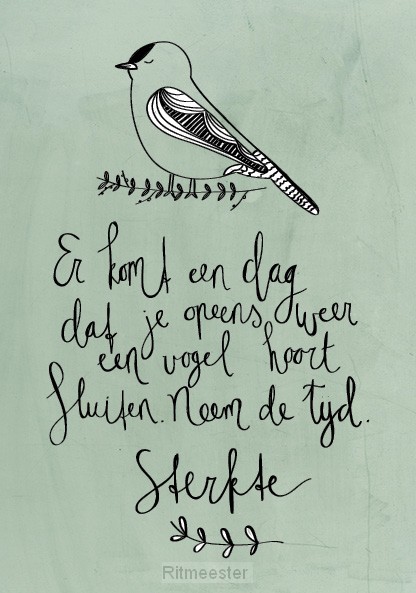 Er komt een dag
dat je opeens weer
een vogel hoort
fluiten. Neem de tijd.
Sterkte
Ritmeester